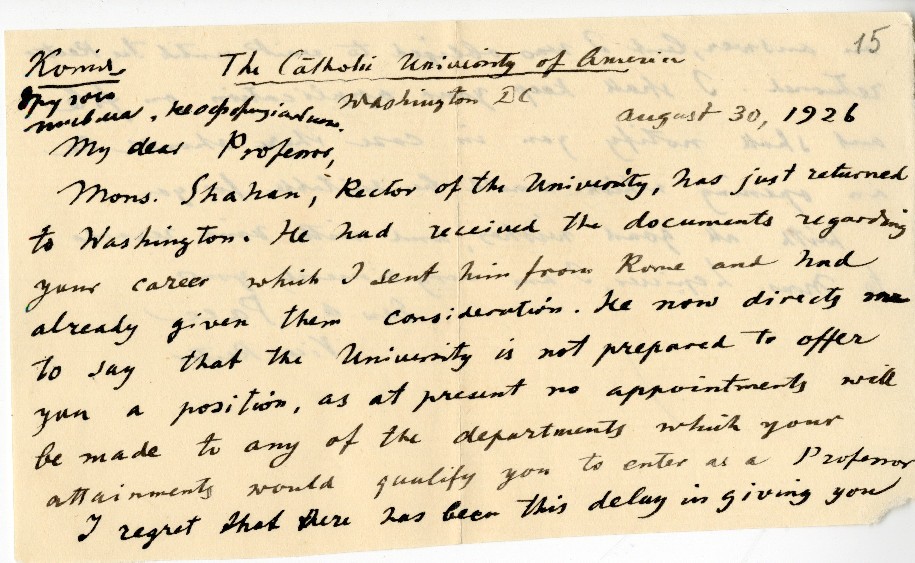 15
Копия
The Catholic University of America
Другого
письма, неофициальн.
Washington DC
August 30, 1926
My dear Professor,
Mons. Shahan, Rector of the University, has just returned
to Washington. He had received the documents regarding
your career which I sent him from Rome and had
already given them consideration. He now directs me
to say that the University is not prepared to offer
you a position, as at present no appointments will
be made to any of the departments which your
attainments would qualify you to enter as a Professor
I regret that there has been this delay in giving you